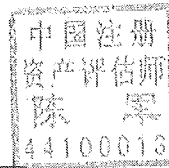 中国注册
资产评估师
陈军
44100013